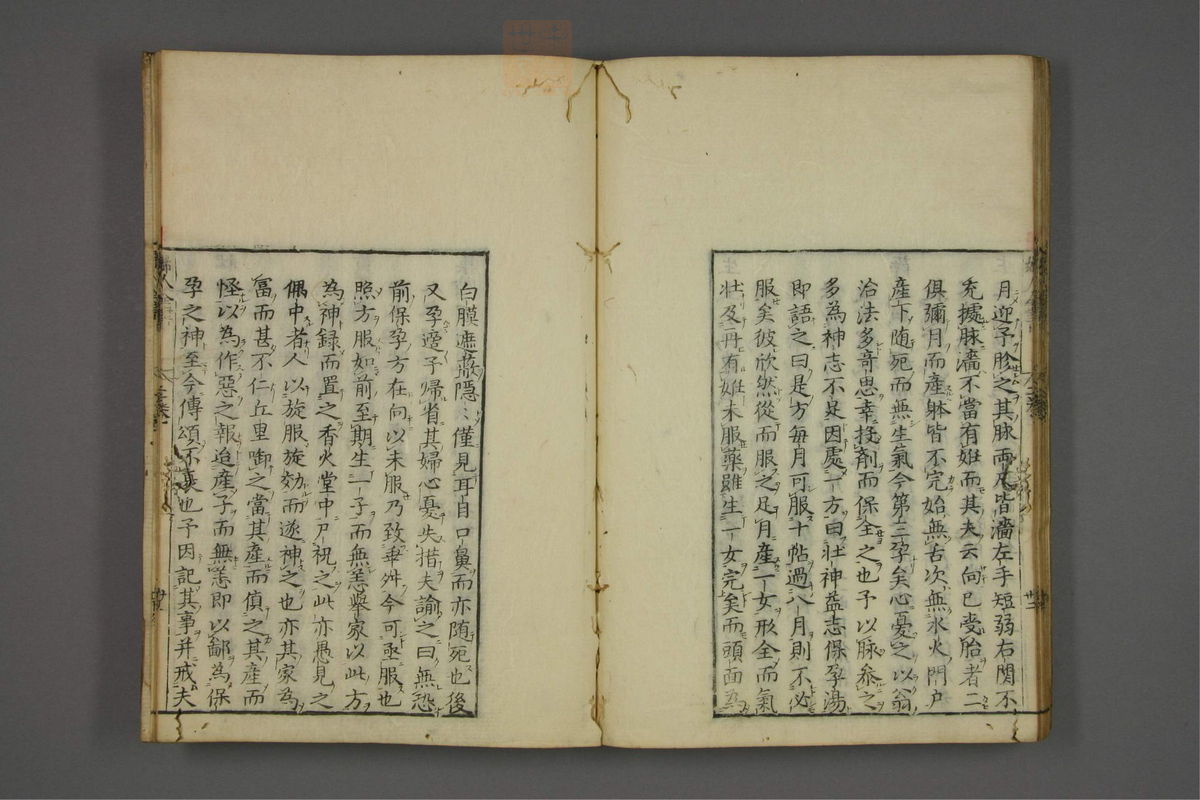 月迎予胗之其脉兩尺皆濇左手短弱右関不
充據脉濇不當有姙而其夫云向已受胎者二
俱彌月而產躰皆不完始無古次無水火門户
產下随死而無生氣今第三孕矣心憂之以翁
治法多奇思幸投剤而保全之也予以脉叅之
多為神志不足因處一方曰壮神益志保孕湯
即語之曰是方每月可服十帖過八月則不必
服矣彼欣然從而服之足月產一女形全而氣
壮及再有姙未服藥雖生一女完矣而頭面為
白膜遮蔽隱〻僅見耳目口鼻而亦随死也後
又孕適予歸省其婦心憂失措夫諭之曰無恐
前保孕方在向以未服乃致乖舛今可亟服也
照方服如前至期生一子而無恙舉家以此方
為神録而置之香火堂中尸祝之此亦愚見之
偶中者人以旋服旋効而遂神之也亦其家為
富而甚不仁丘里啣之當其產而偵之其產而
怪以為作惡之報迨產子而無恙即以鄙為保
孕之神至今傳頌不衰也予因記其事并戒夫